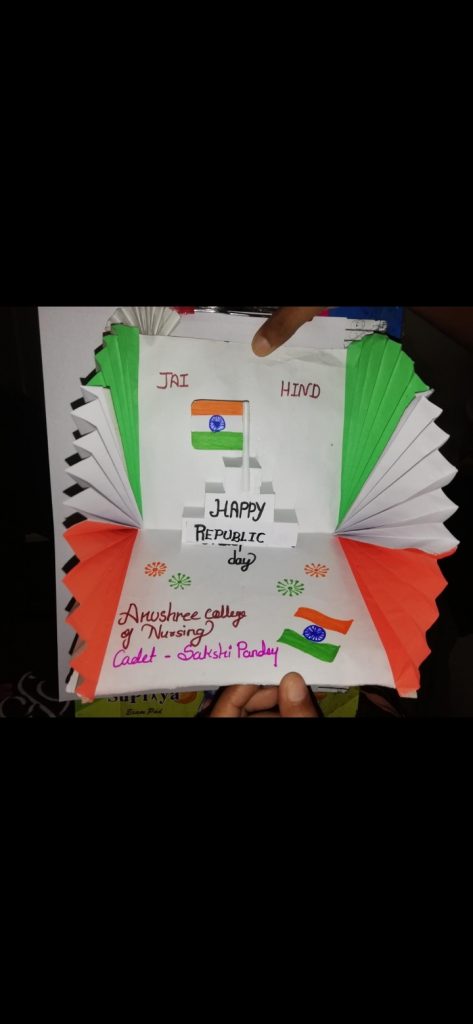 JAI HIND
HAPPY
REPUBLIC
day
Anushree College
of Nursing
Cadet - Sakshi Pandey
Supriya
Exam Pad